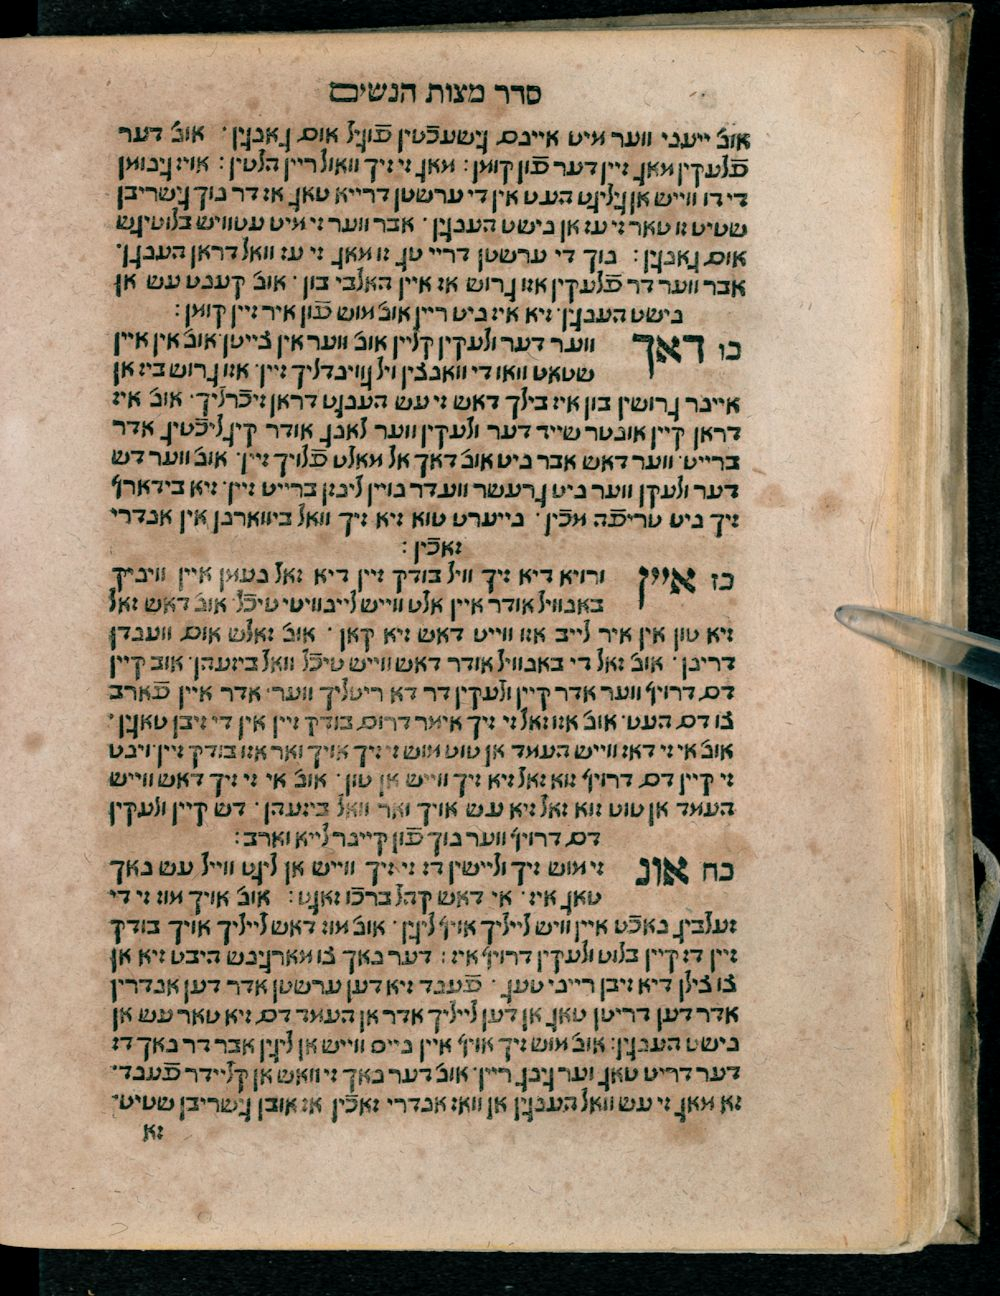 סדר מצות הנשים
אונ׳ ייעני ווער מיט איינם גישעפֿטין פֿויגל אוס גאנגין · אונ׳ דער
פֿלעקין מאג זיין דער פֿון קומן : מאג זי זיך וואול ריין הלטין : אויז גינומן
די דו ווייש אן גילייגט העט אין די ערשטן דרייא טאג אז דר נוך גישריבן
שטיט זו טאר זי עז אן נישט הענגין · אבר ווער זי מיט עטוויש בלוטיגש
אום גאנגין : נוך די ערשטן דריי טג זו מאג זי עז וואל דראן הענגן ·
אבר ווער דר פֿלעקין אזו גרוש אז איין האלבי בון · אונ׳ קענט עש אן
נישט העננגין זיא איז ניט ריין אונ׳ מוש פֿון איר זיין קומן :
כו דאך ווער דער ולעקין קליין אונ׳ ווער אין צייטן אונ׳ אין איין
שטאט וואו די וואנצין ויל גווינדליך זיין · אזו גרוש ביז אן
איינר גרושין בון איז בילך דאש זי עש העננט דראן זיכֿרליך · אונ׳ איז
דראן קיין אונטר שייד דער ולעקין ווער לאנג אודר קיגליכֿטיג אדר
ברייט · ווער דאש אבר ניט אונ׳ דאך אל מאלט פֿלויך זיין · אונ׳ ווער דש
דער ולעקן ווער ניט גרעשר וועדר נויין לינזן ברייט זיין · זיא בידארף
זיך ניט טריפֿה מכֿין · נייערט טוא זיא זיך וואל ביווארנן אין אנדרי
זאכֿין :
כז איין ורויא דיא זיך וויל בודק זיין דיא זאל נעמן איין ווינציך
באנוויל אודר איין אלט ווייש ליינוויטי טיכֿל אונ׳ דאש זאל
זיא טון אין איר לייב אזו ווייט דאש זיא קאן · אונ׳ זאלש אום ווענדן
דרינן · אונ׳ זאל די באנוויל אודר דאש ווייש טיכֿל וואל ביזעהן · אוב קיין
דם דרויף ווער אדר קיין ולעקין דר דא ריטליך ווער אדר איין פֿארב
צו דם העט · אונ׳ אזו זאל זי זיך אימר דרום בודק זיין אין די זיבן טאגין ·
אונ׳ אי זי דאז ווייש העמד אן טוט מוש זי זיך אויך ואר אזו בודק זיין וינט
זי קיין דם דרויף זוא זאל זיא זיך ווייש אן טון · אונ׳ אי זי זיך דאש ווייש
העמד אן טוט זוא זאל זיא עש אויך ואר וואל ביזעהן · דש קיין ולעקין
דם דרויף ווער נוך פֿון קיינר לייא וארב :
כח אונ זי מוש זיך ולייסין דז זי זיך ווייש אן ליגט ווייל עש נאך
טאג איז · אי דאש קהל ברכֿו זאגט : אונ׳ אויך מוז זי די
זעלביג נאכֿט איין וויש לייליך אויף ליגין · אונ׳ מוז דאש לייליך אויך בודק
זיין דז קיין בלוט ולעקין דרויף איז : דער נאך צו מארגינש היבט זיא אן
צו צילן דיא זיבן רייני טעג · פֿענד זיא דען ערשטן אדר דען אנדרין
אדר דען דריטן טאג אן דען לייליך אדר אן העמד דם זיא טאר עש אן
נישט העננגין : אונ׳ מוש זיך אויף איין נייס ווייש אן ליגין אבר דר נאך דז
דער דריט טאג וער גינג ריין · אונ׳ דער נאך זי וואש אן קליידר פֿענד ·
זא מאג זי עש וואל העננגין אן וואז אנדרי זאכֿין אז אובן גישריבן שטיט ·
זא